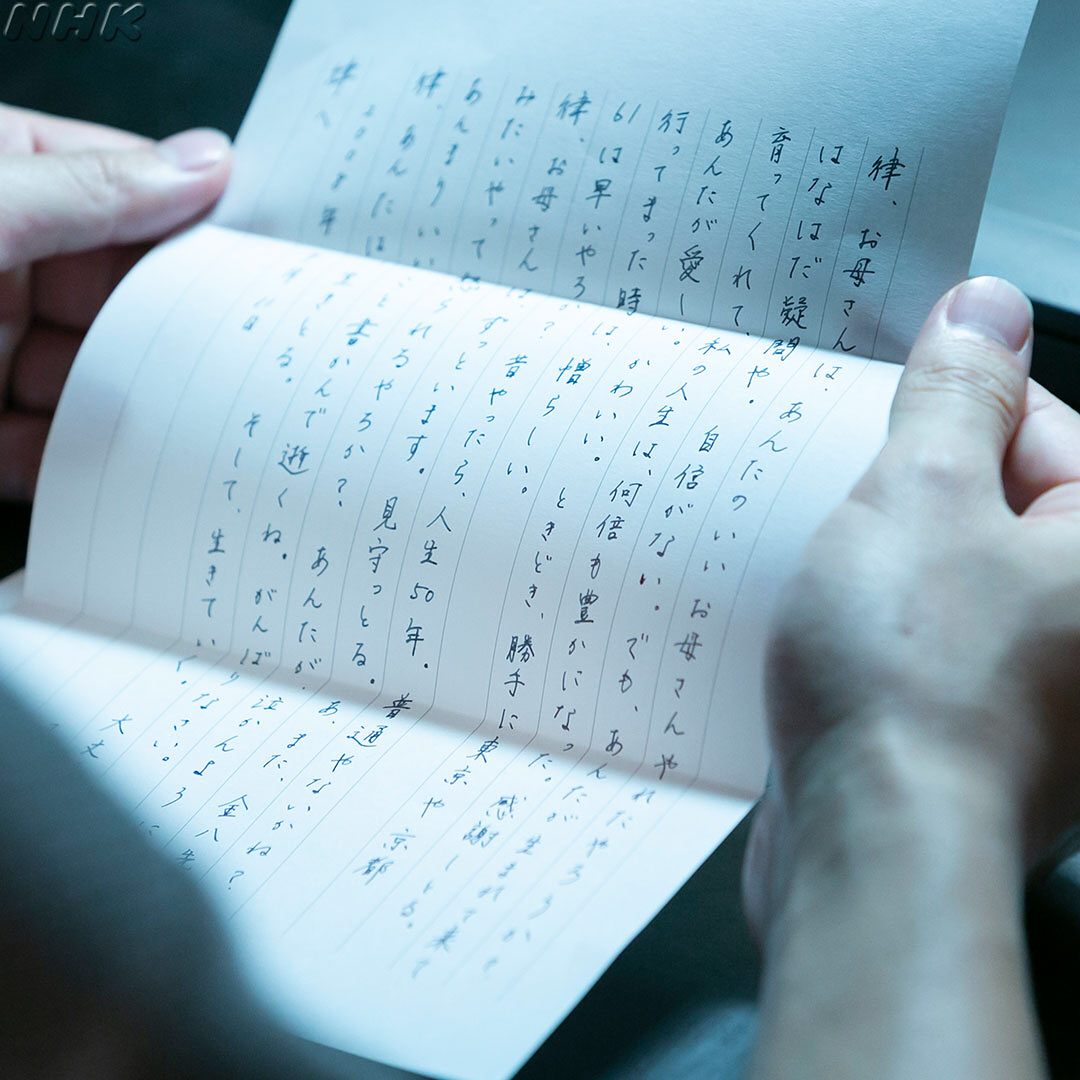 律、お母さんは、あんたのいいお母さんやれたやろうか
はなはだ疑問や。自信がない。でも、あんたが生まれて来て
育ってくれて、私の人生は、何倍も豊かになった。感謝しとる。
あんたが愛しい。かわいい。ときどき、勝手に東京や京都
行ってまった時は、憎らしい。
61は早いやろか?昔やったら、人生50年。普通やないかね?
律、お母さんは、ずっといます。見守っとる。あ、また、金八先
みたいやって怒られるやろか?あんたが、泣かんように
あんまりいいこと書かんで逝くね。がんばりなさい。
律、あんたは生きとる。そして、生きていく。大丈
2008年 月 日
律へ
NHK